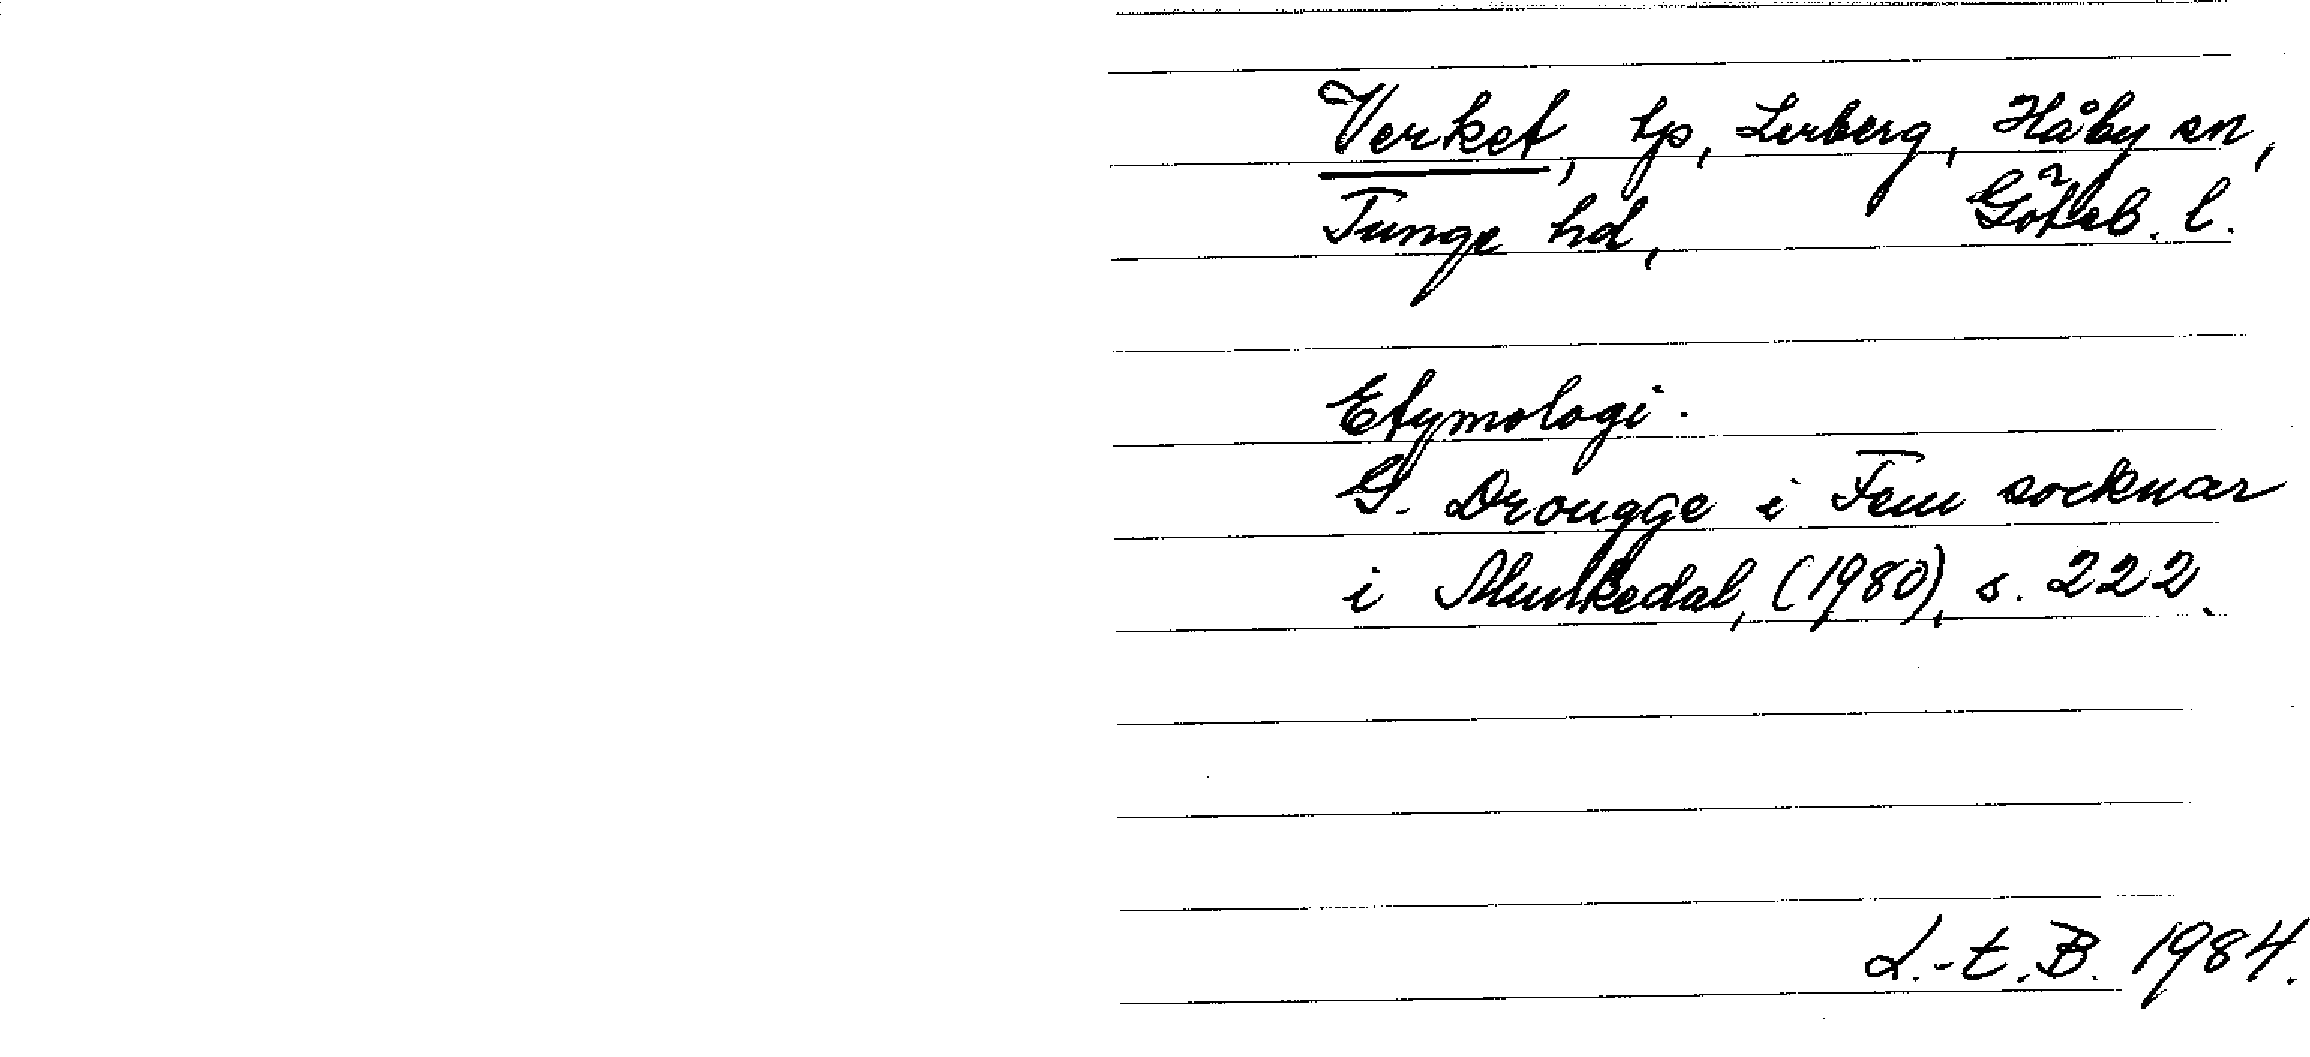 Verket, lp, Lerberg, Håby sn,
Tunge hd, Göteb. l.
Etymologi.
G. Drougge i Fem socknar
i Munkedal, (1980), s. 222.
L.-E. B. 1984.